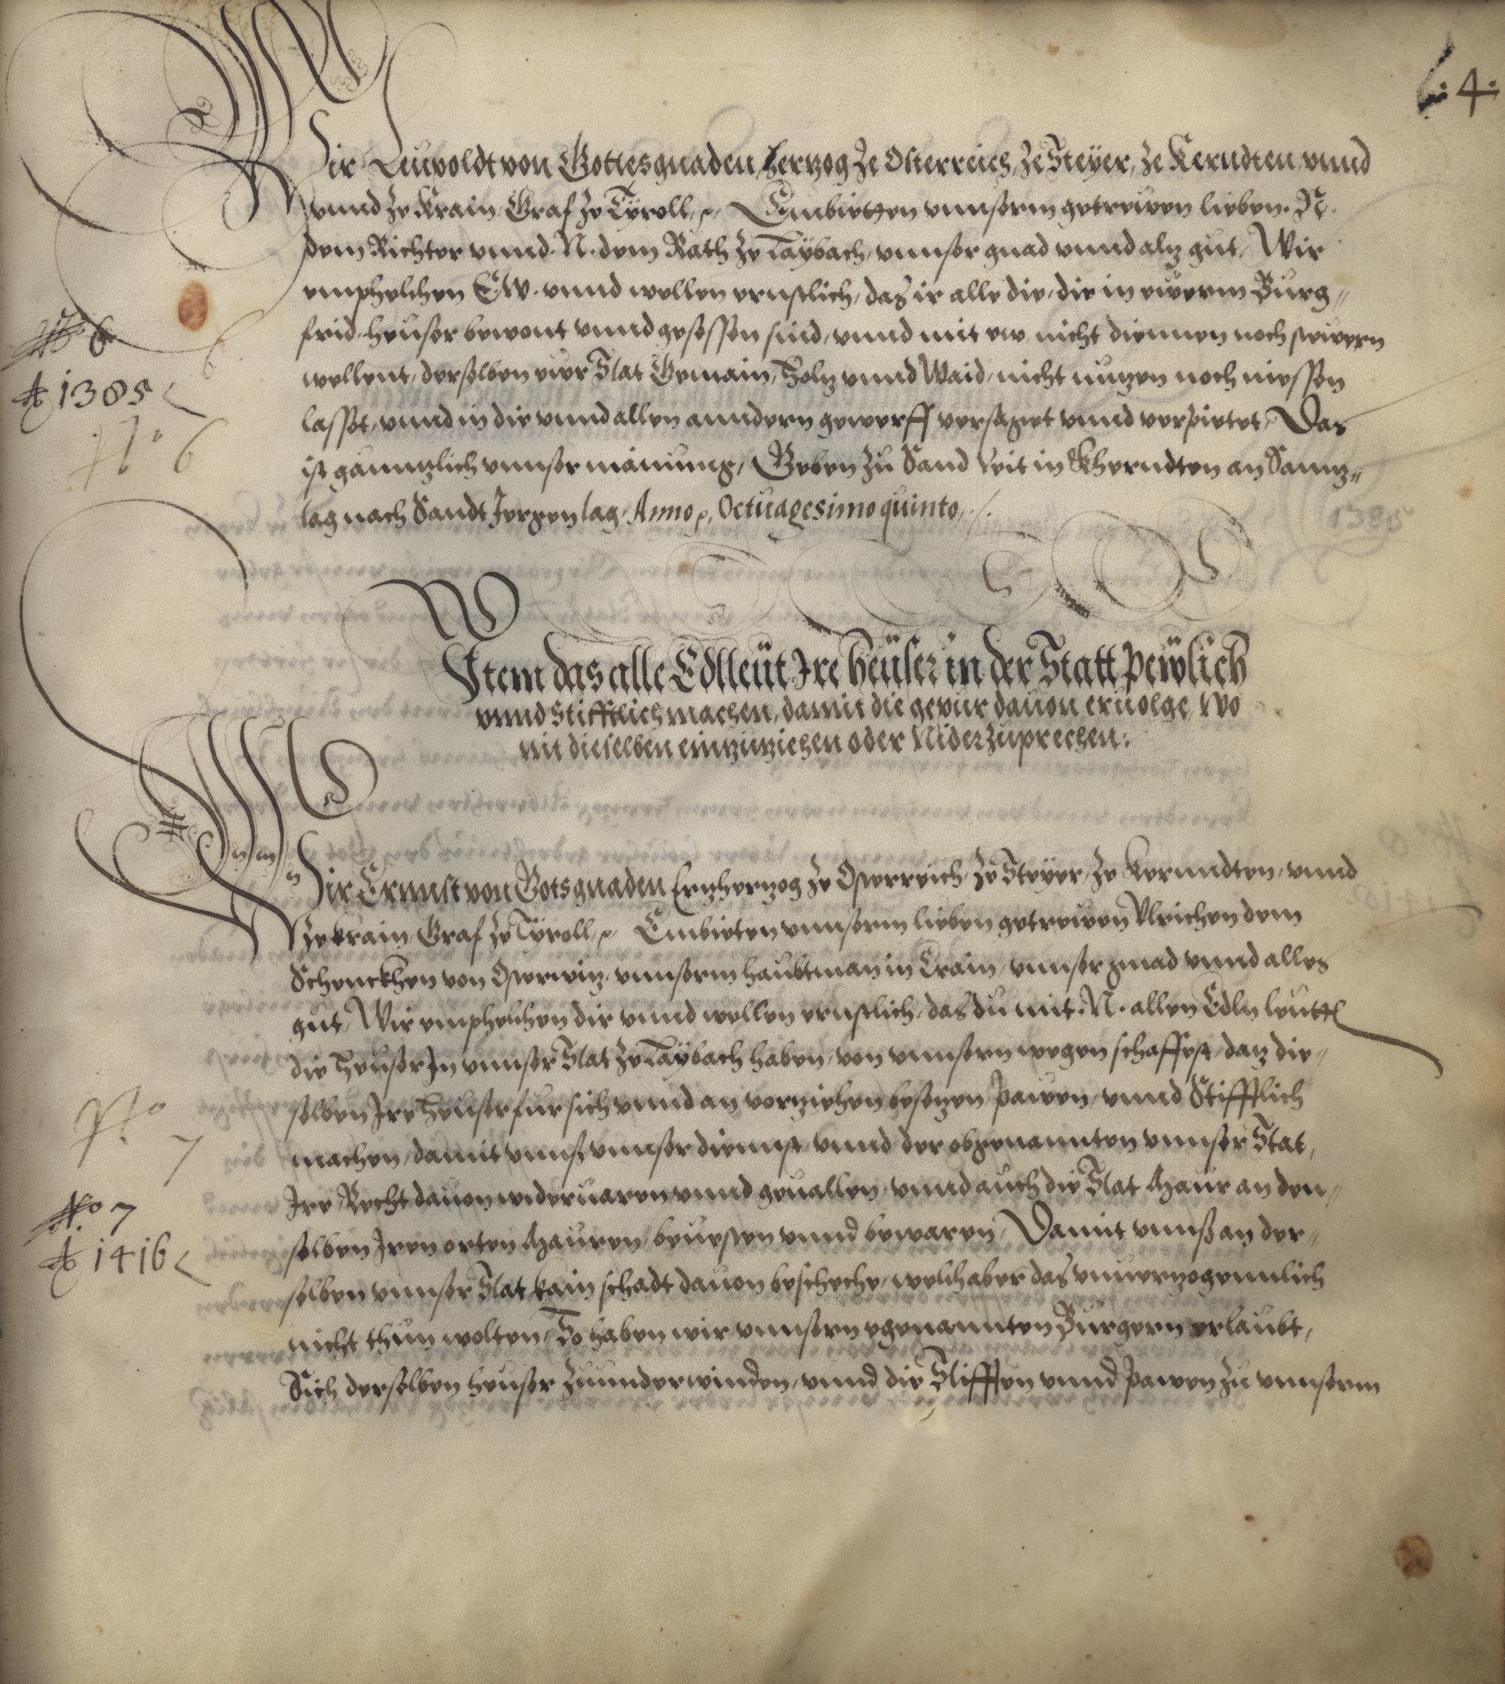 4.
Wir Leupoldt von Gottesgnaden Hertzog Ze Osterreich, Ze Steÿer, Ze Kerndten vnnd
vnnd Ze Krain, Graf Ze Tÿroll, Embietten vnnserm getrewen lieben. N.
dem Richter vnnd. N. dem Rath Ze Laÿbach, vnnser gnad vnnd alz gut, Wir
emphelchen EW. vnnd wellen ernstlich, das ir alle die, die in ewerm Burg=
frid heuser bewont vnnd gesessen sind, vnnd mit ew nicht diennen noch stewern
wellent, derselben ewer Stat Gemain, Holz vnnd Waid, nicht nutzen noch niessen
lasset, vnnd in die vnnd allen anndern gewerff versaget vnnd verpietet, Das
ist gänntzlich vnnser mainung, Geben Zu Sand Veit in Kherndten an Sambz=
tag nach Sandt Jorgen tag Anno Octuagesimo quinto.
No 6
A 1385
No 6
1385
Item das alle Edlleüt Ire heüser in der Statt pewlich
vnnd Stifftlich machen, damit die gepür dauon eruolge, Wo
nit dieselben einzuziehen oder Niderzuprechen.
Wir Ernnst von Gotsgnaden Ertzhertzog Ze Osterreich, Ze Steÿer, Ze Kernndten, vnnd
Ze Krain, Graf Ze Tÿroll, Embieten vnnserm lieben getrewen Vlrichen dem
Schenckhen von Osterwitz, vnnserm haubtman in Crain, vnnser gnad vnnd alles
gut, Wir emphelchen dir vnnd wellen ernstlich, das du mit. N. allen Edln leutten
die Heuser In vnnser Stat Ze Laÿbach haben, von vnnsern wegen schaffest, daz die=
selben Ire Heuser fur sich vnnd an verziehen besetzen, pawen, vnnd Stifftlich
machen, damit vnns vnnser diennst, vnnd der obgenannten vnnser Stat,
Ire Recht dauon wideruaren vnnd geuallen, vnnd auch die Stat Maur an den=
selben Iren orten Mauren, beuesten vnnd bewaren, Damit vnns an der=
selben vnnser Stat kain schadt dauon beschehe, welch aber das vnuerzogennlich
nicht thun wolten, So haben wir vnnsern egenannten Burgern erlaubt,
Sich derselben heuser Zuunderwinden, vnnd die Stifften vnnd pawen Zu vnnserm
No 7
No 7
A 1416